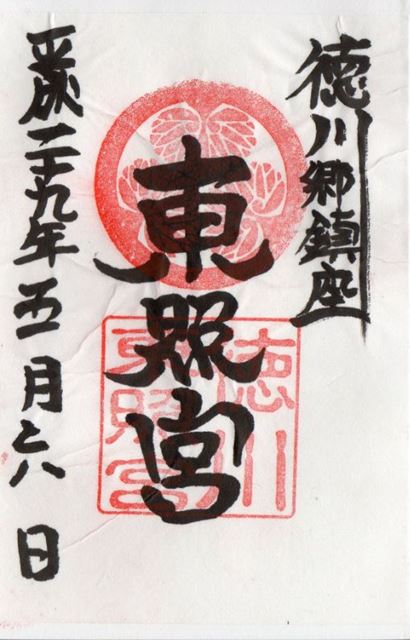 徳川郷鎮座
東照宮
徳川
東照宮
平成二十九年五月六日